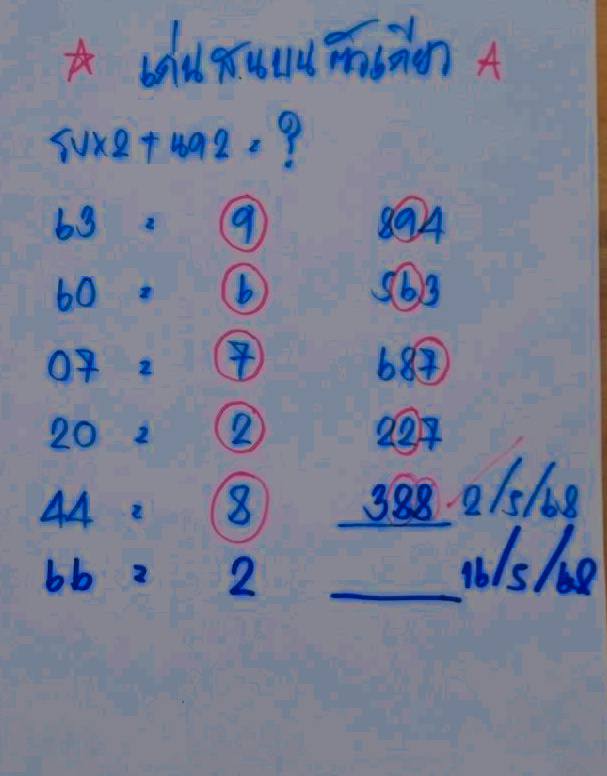 ☆ เด่นสนบน ตัวเดียว A
รบx2 + ผล2 = ?
63 = 9 894
60 = 6 563
07 = 7 687
20 = 2 227
44 = 8 388 2/5/68
66 = 2 16/5/68